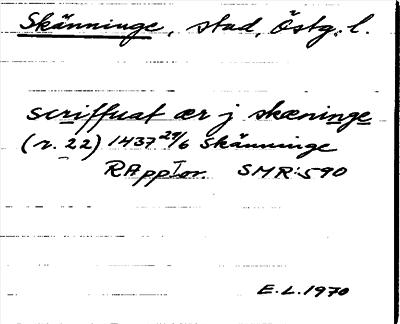 Skänninge, stad, Östg. l.
scriffuat ær j skæninge
(r. 22) 1437 29/6 Skänninge
RAppTor. SMR:590
E.L.1970